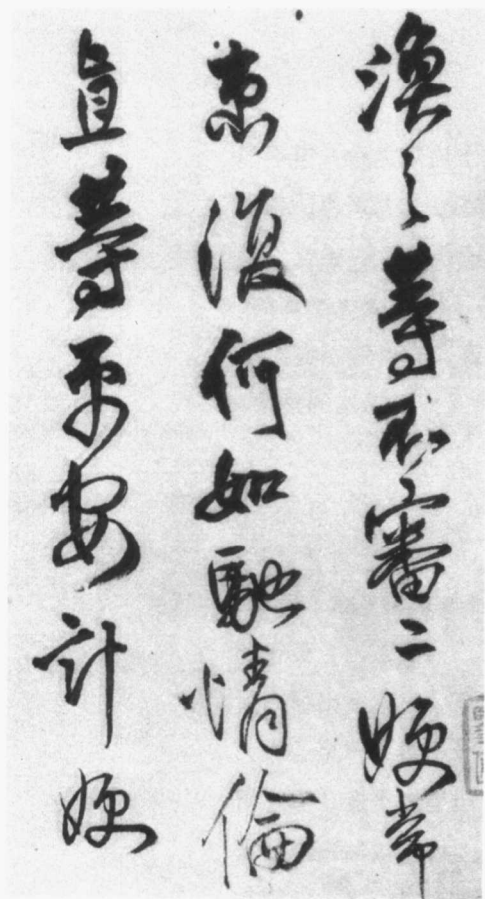 渙之等不審二嫂常
患復何如馳情倫
直等平安計嫂